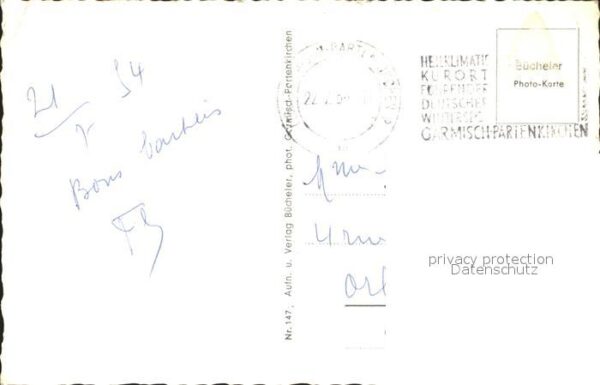 21/5 54
Bons baisers
Nr. 147, Aufn. u. Verlag Bücheler, phot. Garmisch-Partenkirchen
HEILKLIMATI
KURORT
FÜHRENDER
DEUTSCHER
WINTERSPO
GARMISCH-PARTENKIRCHEN
Bücheler
Photo-Karte
Mme
4 rue
privacy protection
Datenschutz